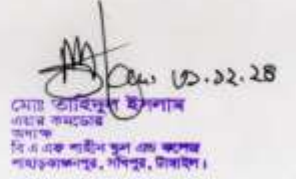 ০১.১২.২৪
মোঃ তাহিদুল ইসলাম
এয়ার কমডোর
অধ্যক্ষ
বি এ এফ শাহীন স্কুল এন্ড কলেজ
পাহাড়কাঞ্চনপুর, সখিপুর, টাঙ্গাইল।